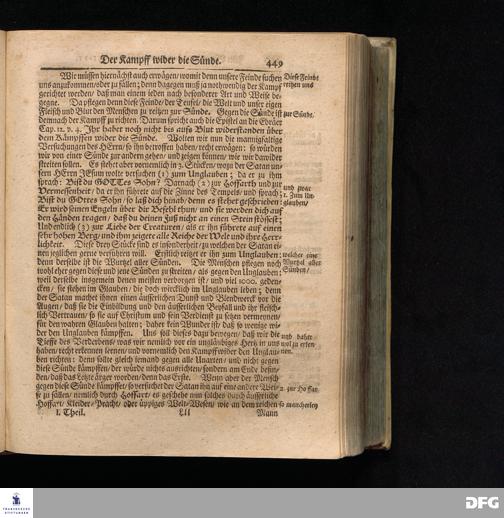 Der Kampff wider die Sünde. 449
Wir müssen hiernächst auch erwägen/ womit denn unsere Feinde suchen
uns anzukommen/ oder zu fällen; denn dagegen muß ja nothwendig der Kampf
gerichtet werden/ daß man einem ieden nach besonderer Art und Weise be-
gegne. Da pflegen denn diese Feinde/ der Teufel/ die Welt und unser eigen
Fleisch und Blut den Menschen zu reitzen zur Sünde. Gegen die Sünde ist
demnach der Kampff zu richten. Darum spricht auch die Epistel an die Ebräer
Cap. 12. v. 4. Ihr habet noch nicht bis aufs Blut widerstanden über
dem Kämpffen wider die Sünde. Wolten wir nun die mannigfaltige
Versuchungen des HErrn/ so ihn betroffen haben/ recht erwägen: so würden
wir von einer Sünde zur andern gehen/ und zeigen können/ wie wir dawider
streiten sollen. Es stehet aber vornemlich in 3. Stücken/ wozu der Satan un-
sern HErrn JEsum wolte versuchen (1) zum Unglauben; da er zu ihm
sprach: Bist du GOTTes Sohn? Darnach (2) zur Hoffarth und zur
Vermessenheit/ da er ihn führete auf die Zinne des Tempels/ und sprach:
Bist du GOttes Sohn/ so laß dich hinab/ denn es stehet geschrieben:
Er wird seinen Engeln über dir Befehl thun/ und sie werden dich auf
den Händen tragen/ daß du deinen Fuß nicht an einen Stein stössest;
Und endlich (3) zur Liebe der Creaturen/ als er ihn führete auf einen
sehr hohen Berg/ und ihm zeigete alle Reiche der Welt und ihre Herr-
lichkeit. Diese drey Stücke sind es insonderheit/ zu welchen der Satan ei-
nen jeglichen gerne verführen will. Erstlich reitzet er ihn zum Unglauben:
denn derselbe ist die Wurtzel aller Sünden. Die Menschen pflegen noch
wohl eher gegen diese und jene Sünden zu streiten/ als gegen den Unglauben;
weil derselbe insgemein denen meisten verborgen ist/ und viel 1000. geden-
cken/ sie stehen im Glauben/ die doch wircklich im Unglauben leben; denn
der Satan machet ihnen einen äusserlichen Dunst und Blendwerck vor die
Augen/ daß sie die Einbildung und den äusserlichen Beyfall und ihr fleisch-
lich Vertrauen/ so sie auf Christum und sein Verdienst zu setzen vermeynen/
für den wahren Glauben halten; daher kein Wunder ist/ daß so wenige wi-
der den Unglauben kämpffen. Uns soll dieses dazu bewegen/ daß wir die
Tieffe des Verderbens/ was wir nemlich vor ein ungläubiges Hertz in uns
haben/ recht erkennen lernen/ und vornemlich den Kampff wider den Unglau-
ben richten: denn solte gleich jemand gegen alle Unarten/ und nicht gegen
diese Sünde kämpffen/ der würde nichts ausrichten/ sondern am Ende befin-
den/ daß das Letzte ärger worden/ denn das Erste. Wenn aber der Mensch
gegen diese Sünde kämpffet/ so versuchet der Satan ihn auf eine andere Wei-
se zu fällen/ nemlich durch Hoffart/ es geschehe nun solches durch äusserliche
Hoffart/ Kleider-Pracht/ oder üppiges Welt-Wesen/ wie an dem reichen
I. Theil. Lll Mann
Diese Feinde
reitzen uns
zur Sünde/
und zwar
1. Zum Un-
glauben/
welcher eine
Wurtzel aller
Sünden/
und daher
wol zu erken-
nen.
2. zur Hoffart
so mancherley
FRANCKESCHE
STIFTUNGEN
DFG